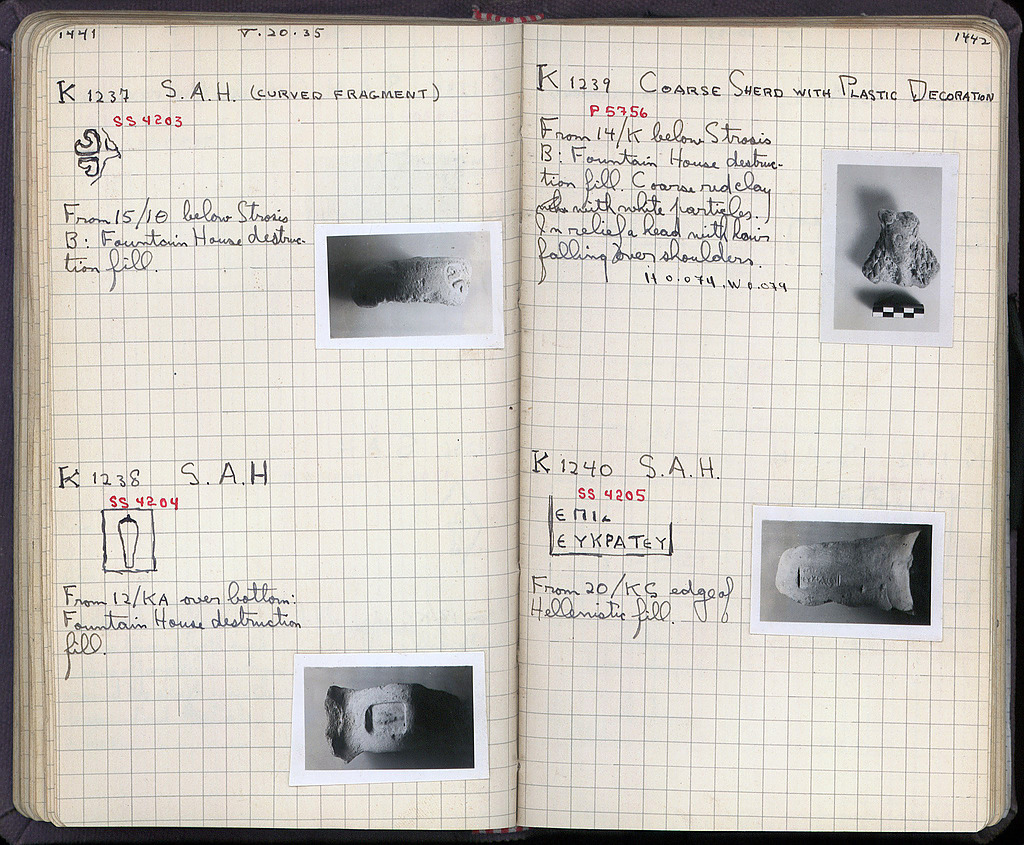 1441
V.20.35
K 1237 S.A.H. (CURVED FRAGMENT)
SS 4203
From 15/ΙΘ below Strosis
B: Fountain House destruc-
tion fill.
K 1238 S.A.H
SS 4204
From 12/KA over bottom:
Fountain House destruction
fill.
1442
K 1239 COARSE SHERD WITH PLASTIC DECORATION
P 5756
From 14/K below Strosis
B: Fountain House destruc-
tion fill. Coarse red clay
with white particles.
In relief a head with hair
falling over shoulders.
H 0.074. W 0.079
K 1240 S.A.H.
SS 4205
ΕΠΙ
ΕΥΚΡΑΤΕΥ
From 20/Κς edge of
Hellenistic fill.